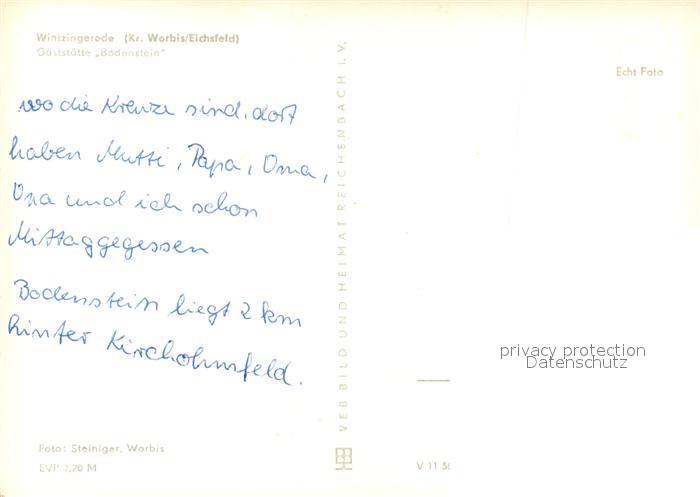 Wintzingerode (Kr. Worbis/Eichsfeld)
Gaststätte „Bodenstein"
Echt Foto
wo die Kreuze sind, dort
haben Mutti, Papa, Oma,
Opa und ich schon
Mittaggegessen
Bodenstein liegt 2 km
hinter Kirchohmfeld.
VEB BILD UND HEIMAT REICHENBACH I. V.
privacy protection
Datenschutz
Foto: Steiniger, Worbis
EVP 0,20 M
V 11 50